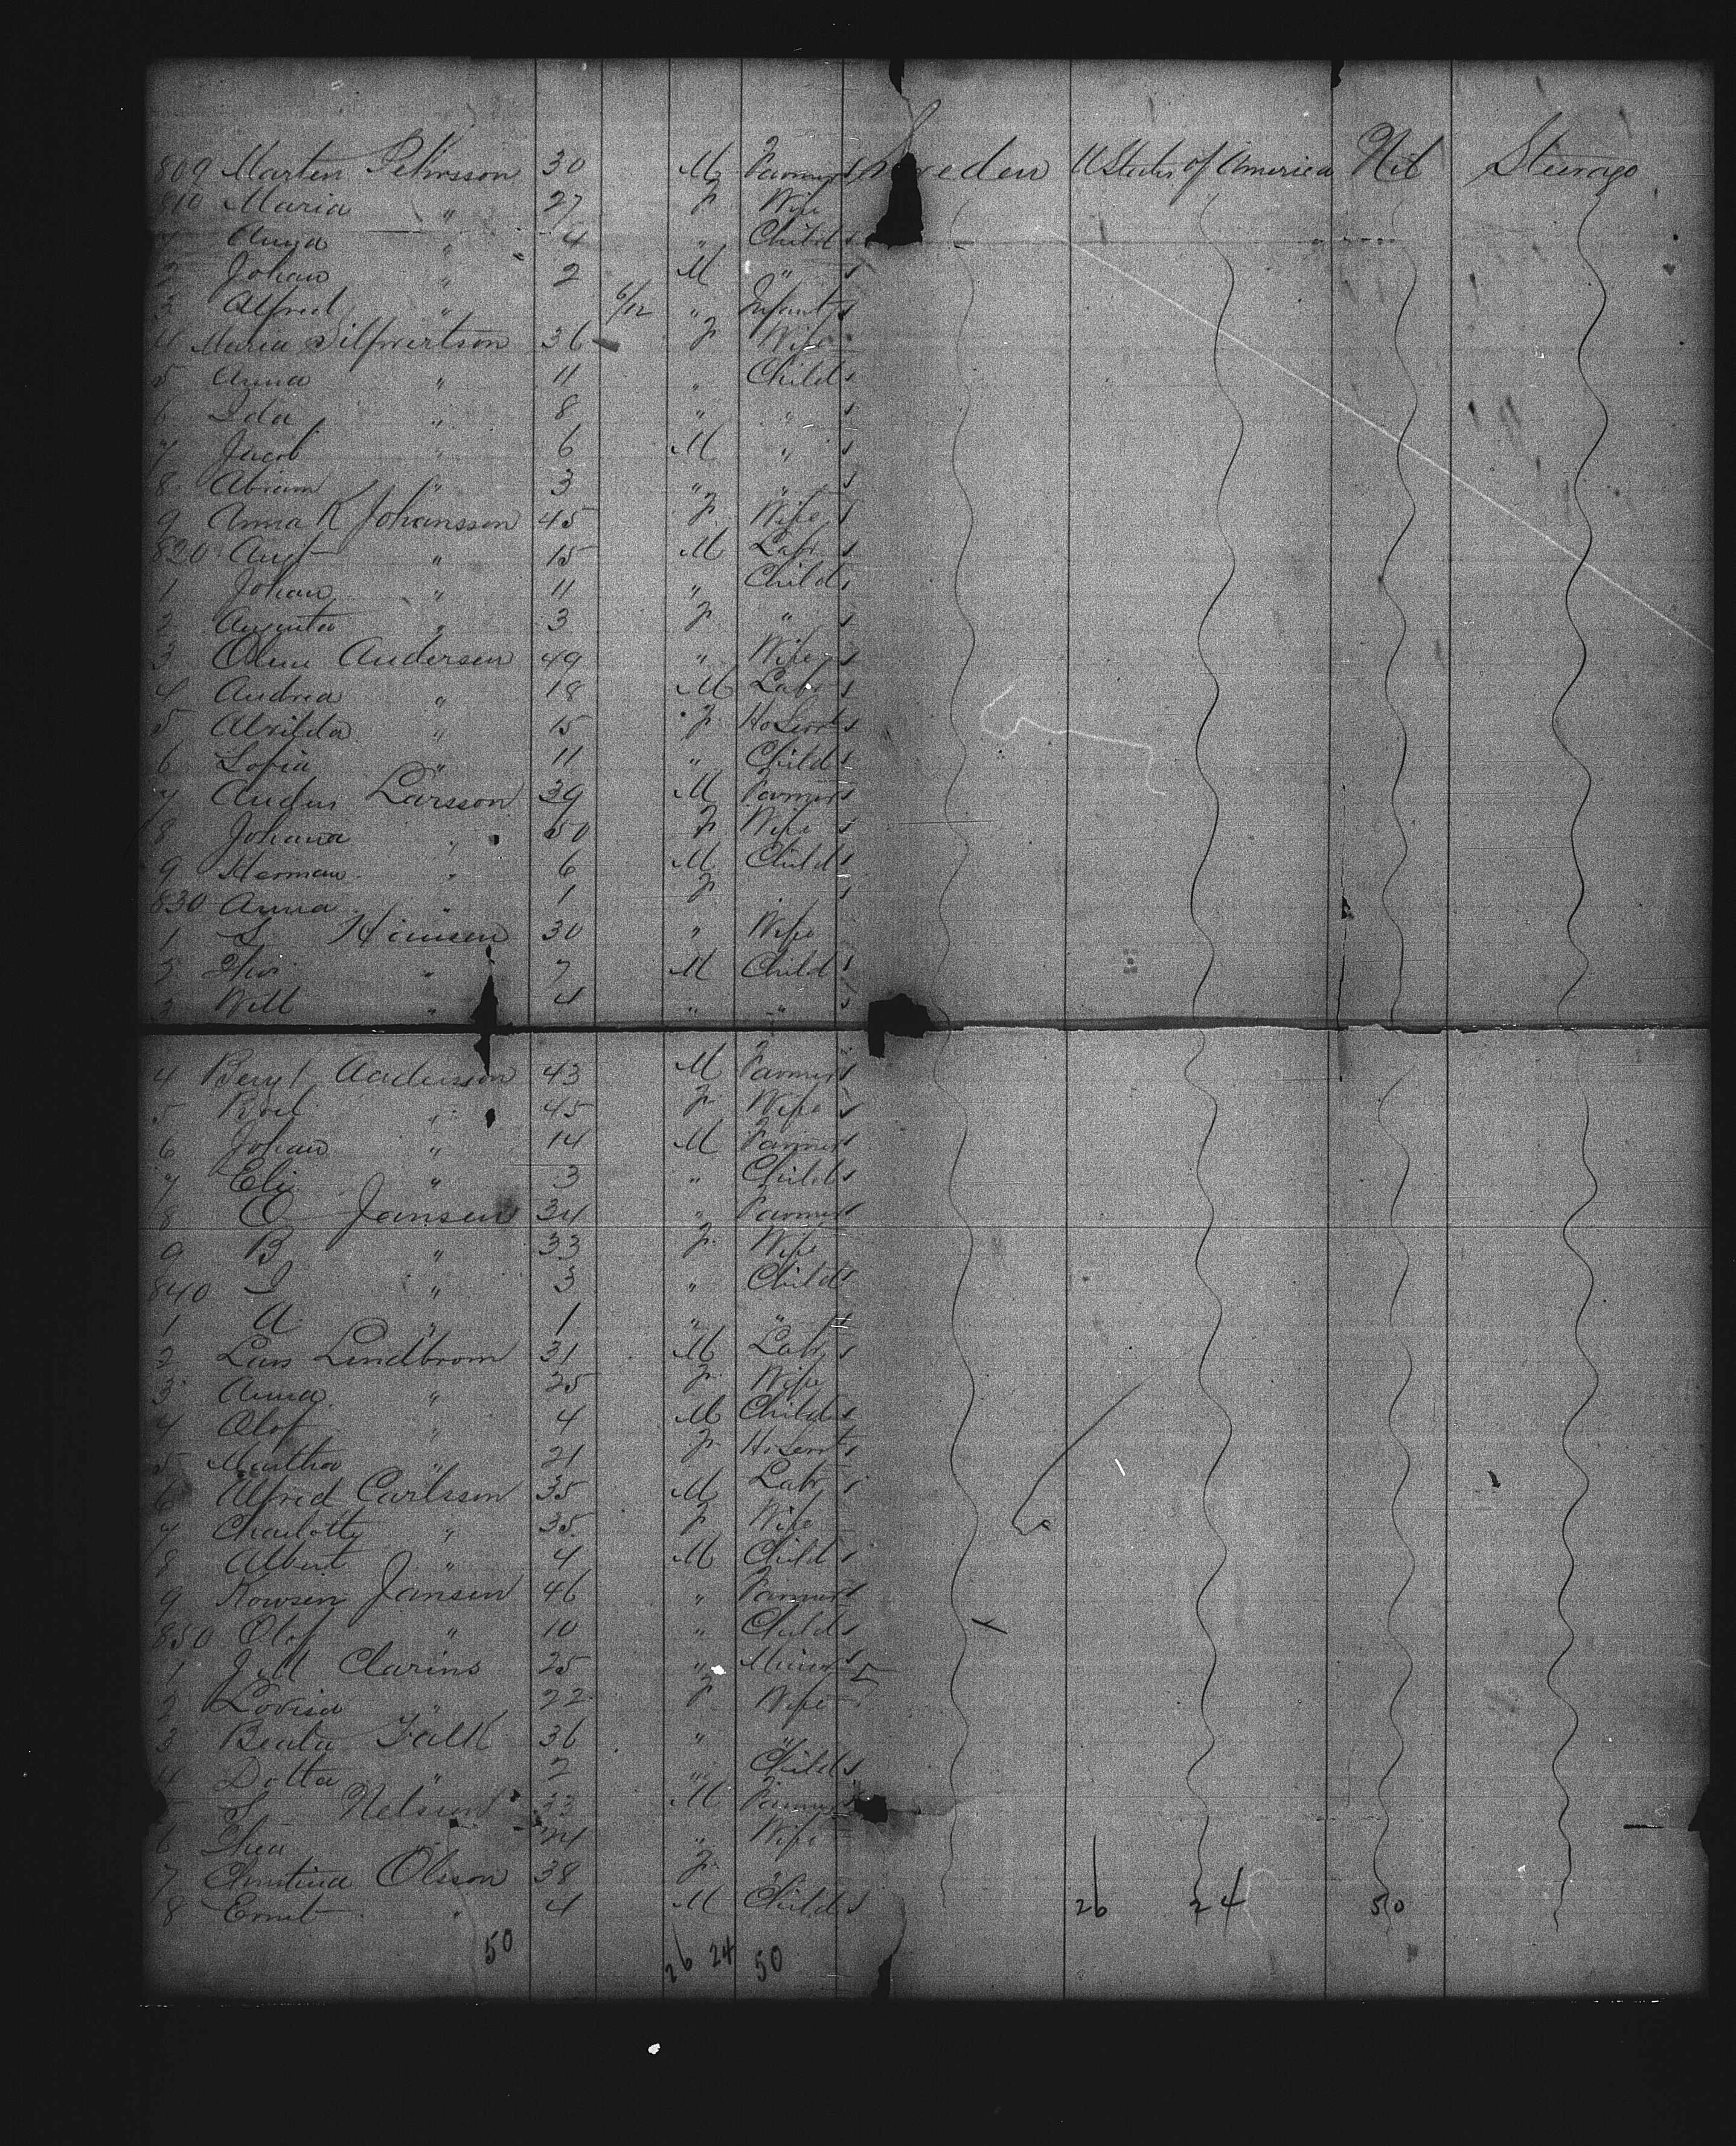 809 Marten Pehrsson 30 M Farmer s Sweden U States of America Nil Steerage
810 Maria " 27 F Wife
1 Anna " 4 " Child s
2 Johan " 2 M " s
3 Alfred " 6/12 " Infant s
4 Maria Silfvertson 36 F Wife
5 Anna " 11 " Child s
6 Ida " 8 " " s
7 Jacob " 6 M " s
8 Abram " 3 " " s
9 Anna K Johansson 45 F Wife s
820 Aug " 15 M Labr s
1 Johan " 11 " Child s
2 Augusta " 3 F " s
3 Andersen 49 " Wife s
4 Andrea " 18 M Labr s
5 " 15 F Ho Servt s
6 Sofia " 11 " Child s
7 Andrs Larsson 39 M Farmer s
8 Johana " 50 F Wife s
9 Herman " 6 M Child s
830 Anna " 1 F s
1 S Hansen 30 " Wife
2 " 7 M Child s
3 Will " 4 " " s
4 Bengt Anderson 43 M Farmer s
5 " 45 F Wife s
6 Johan " 14 M Farmer s
7 Eli " 3 " Child s
8 O Jansen 34 " Farmer s
9 B " 33 F Wife
840 I " 3 " Child s
1 A " 1 " "
2 Lars Lindbrom 31 M Labr s
3 Anna " 25 F Wife
4 Olof " 4 M Child s
5 Martha " 21 F Ho Servt s
6 Alfred Carlsson 35 M Labr s
7 Charlotty " 35 F Wife
8 Albert " 4 M Child s
9 Jansen 46 " Farmer s
850 Olof " 10 " Child s
1 J M Clarins 25 " Miner s
2 Lovisa " 22 F Wife
3 Beata Falk 36 " "
4 Dotta " 2 " Child s
5 S Nelson 33 M Farmer s
6 Thea " 24 " Wife
7 Christina Olsson 38 F "
8 Ernst " 4 M Child s 26 24 50
50 26 24 50